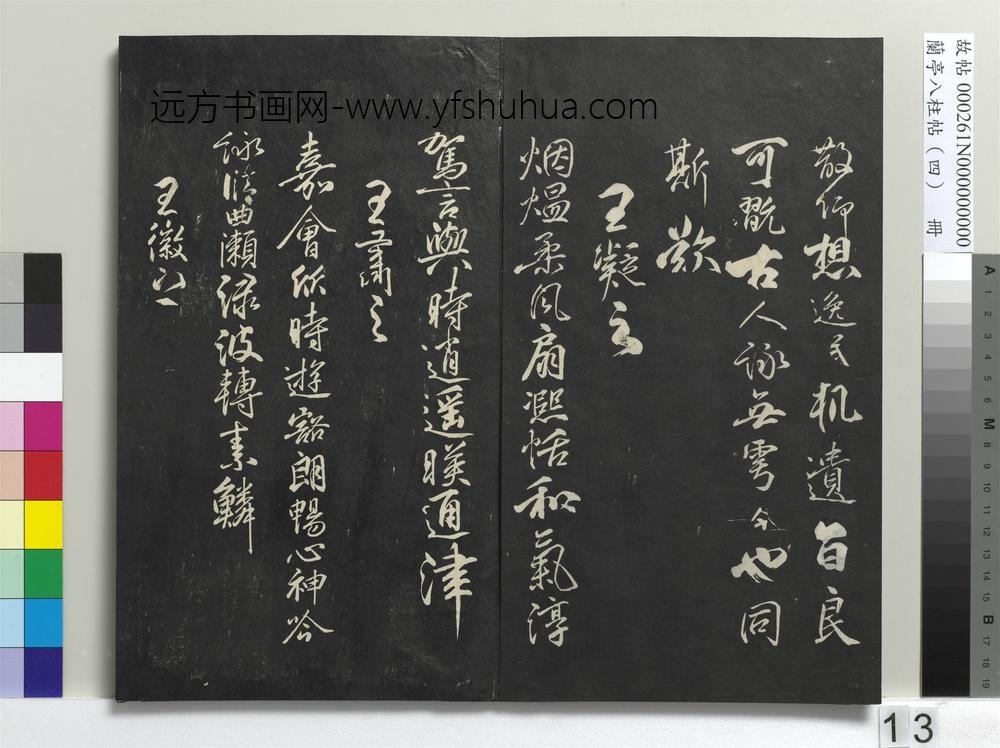 远方书画网-www.yfshuhua.com
散仰想逸民軌遺旨良
可翫古人詠無雩今也同
斯歎
王凝之
烟熅柔風扇熙恬和氣淳
駕言興時逍遙暎通津
王肅之
嘉會欣時遊豁朗暢心神吟
詠曲瀨淥波轉素鱗
王徽之
故帖 000261N000000000
蘭亭八柱帖(四) 冊
A 1 2 3 4 5 6 M 8 9 10 11 12 13 14 15 B 17 18 19
13